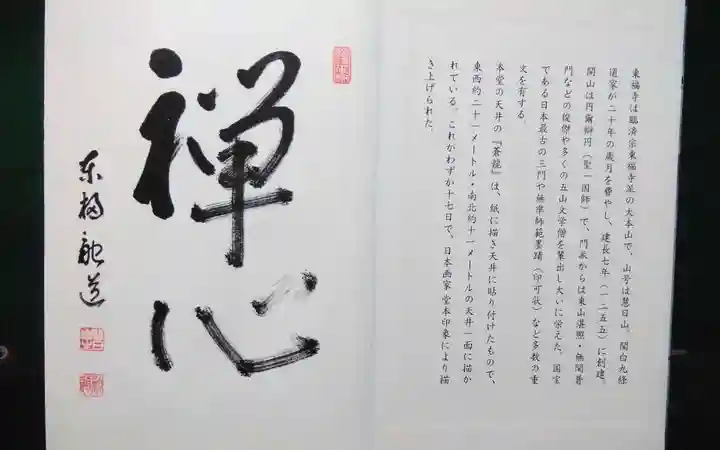 東福寺は臨済宗東福寺派の大本山で、山号は慧日山。関白九條
道家が二十年の歳月を費やし、建長七年(一二五五)に創建。
開山は円爾辯円(聖一国師)で、門派からは東山湛照・無関普
門などの俊傑や多くの五山文学僧を輩出し大いに栄えた。国宝
である日本最古の三門や無準師範墨蹟(印可状)など多数の重
文を有する。
本堂の天井の『蒼龍』は、紙に描き天井に貼り付けたもので、
東西約二十二メートル・南北約十一メートルの天井一面に描か
れている。これがわずか十七日で、日本画家 堂本印象により描
き上げられた。
禅心
東福